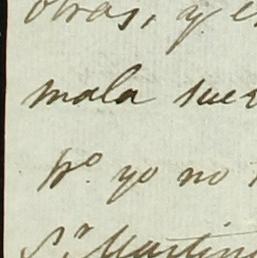 otras, y e
mala sue
Pº yo no
Sr Martin